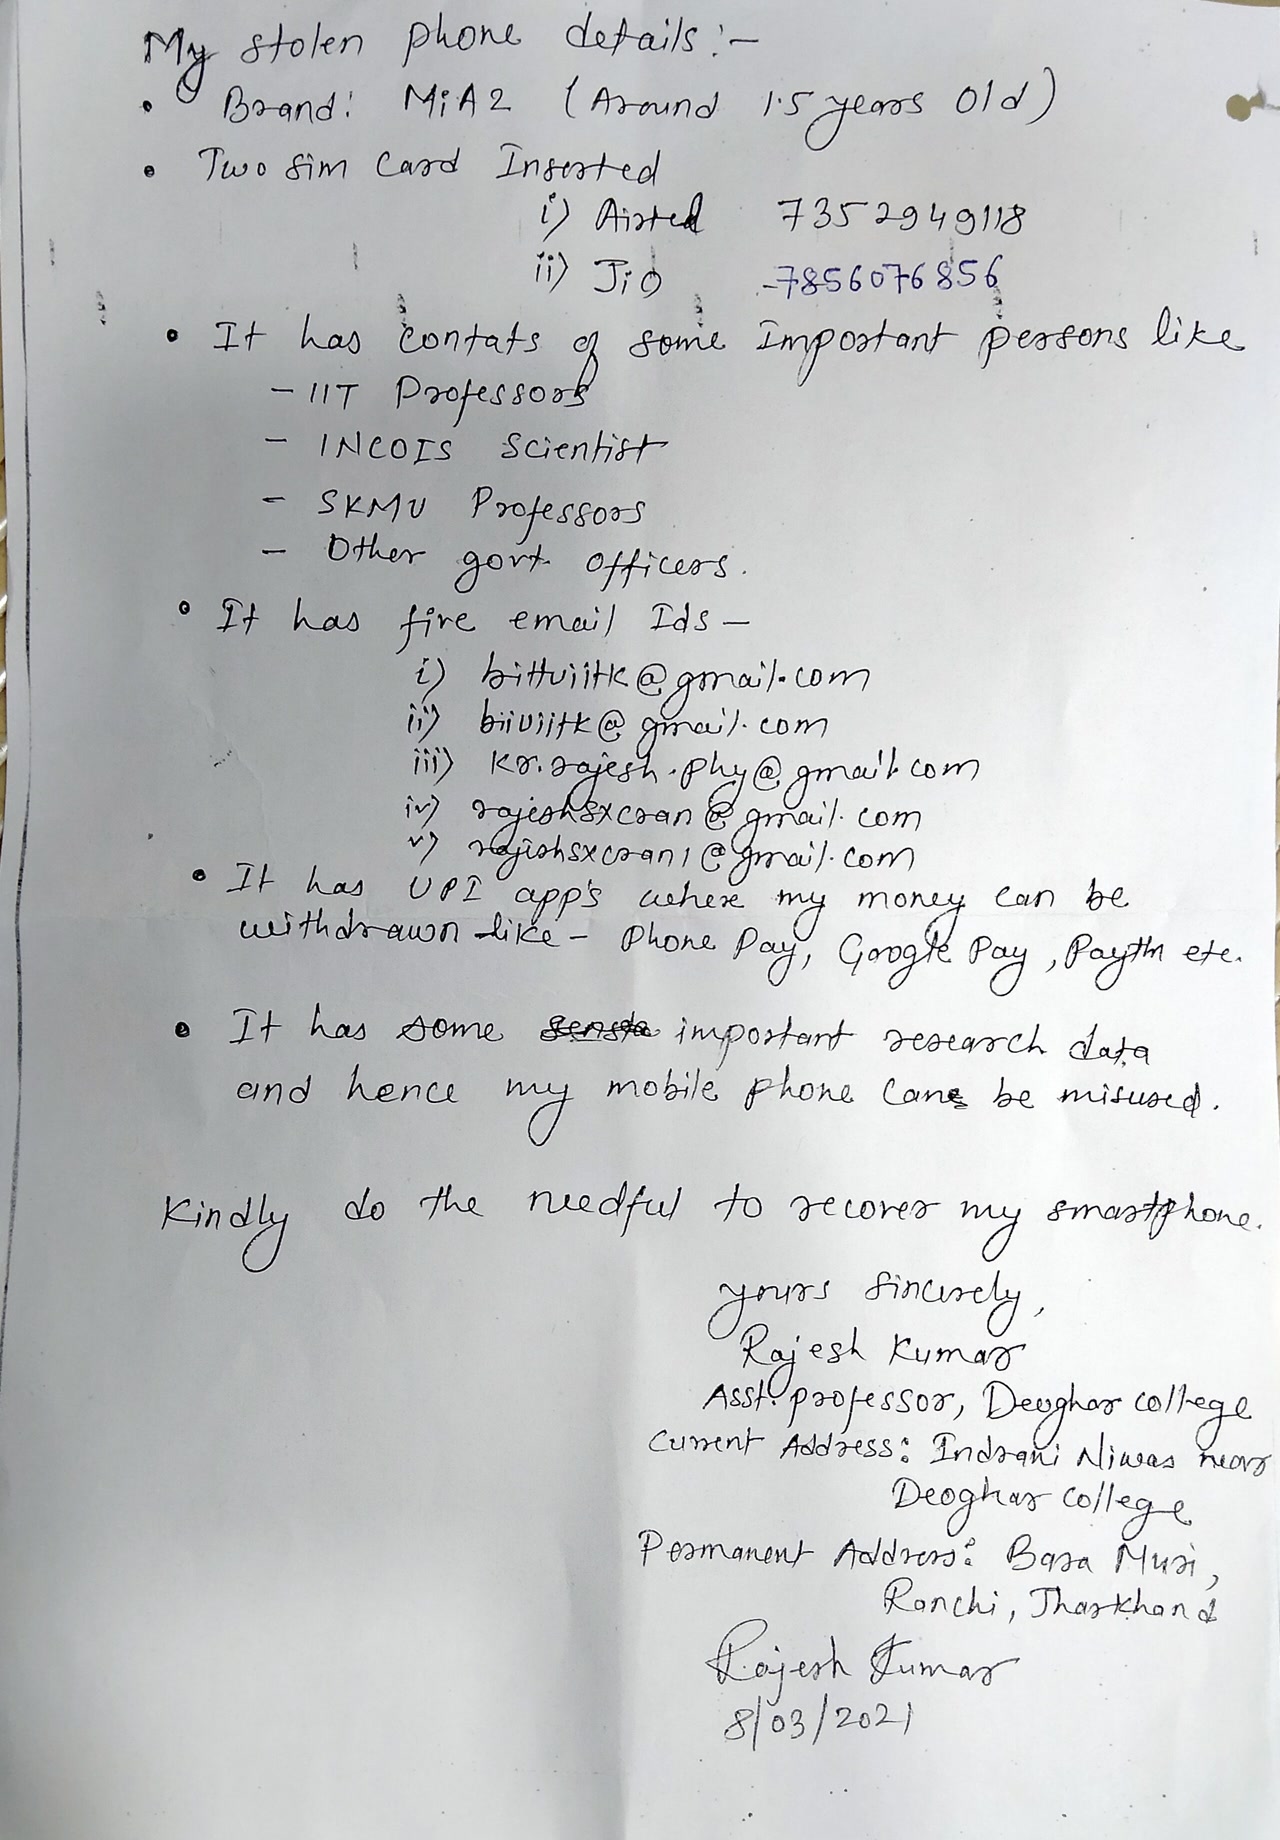 My stolen phone details:-
• Brand: MiA2 (Around 1.5 years old)
• Two sim card Inserted
i) Airtel 7352949118
ii) Jio -7856076856
• It has contats of some Important persons like
- IIT Professors
- INCOIS Scientist
- SKMU Professors
- Other govt. officers.
• It has five email Ids -
i) bittuiitk@gmail.com
ii) biiuiitk@gmail.com
iii) kr.rajesh.phy@gmail.com
iv) rajeshsxcran@gmail.com
v) rajeshsxcran1@gmail.com
• It has UPI app's where my money can be
withdrawn like - Phone Pay, Google Pay, Paytm etc.
• It has some important research data
and hence my mobile phone can be misused.
Kindly do the needful to recover my smartphone.
yours sincerely,
Rajesh Kumar
Asst. professor, Deoghar college
Current Address: Indrani Niwas near
Deoghar college
Permanent Address: Bara Muri,
Ranchi, Jharkhand
Rajesh Kumar
8/03/2021